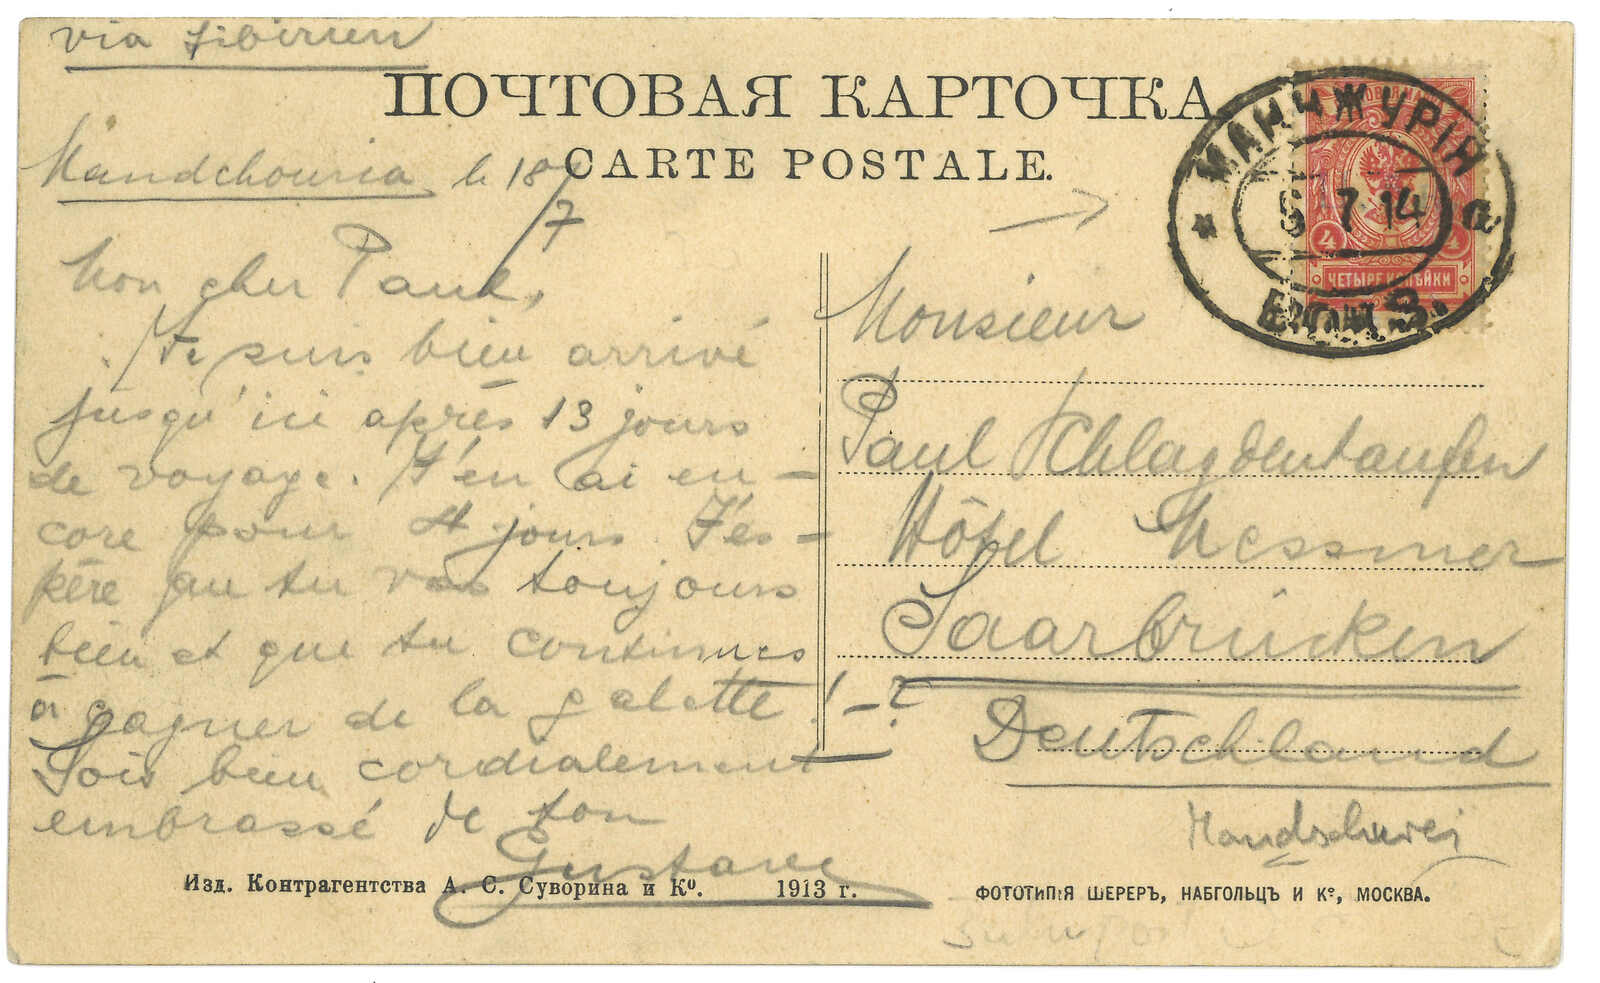 via Sibirien
ПОЧТОВАЯ КАРТОЧКА
CARTE POSTALE.
Mandchouria le 18/7
Mon cher Paul,
Je suis bien arrivé
jusqu'ici après 13 jours
de voyage. J'en ai en-
core pour 4 jours J'es-
père que tu vas toujours
bien et que tu continues
à gagner de la galette!-?
Sois bien cordialement
embrassé de ton
Gustave
МАНЧЖУРІЯ
6 7 14
ЧЕТЫРЕ КОПѢЙКИ
4 4
Monsieur
Paul Schlagdenhaufen
Hôtel Messmer
Saarbrücken
Deutschland
Mandschurei
Изд. Контрагентства А. С. Суворина и Ко. 1913 г.
ФОТОТИПІЯ ШЕРЕРЪ, НАБГОЛЬЦЪ И Ко, МОСКВА.